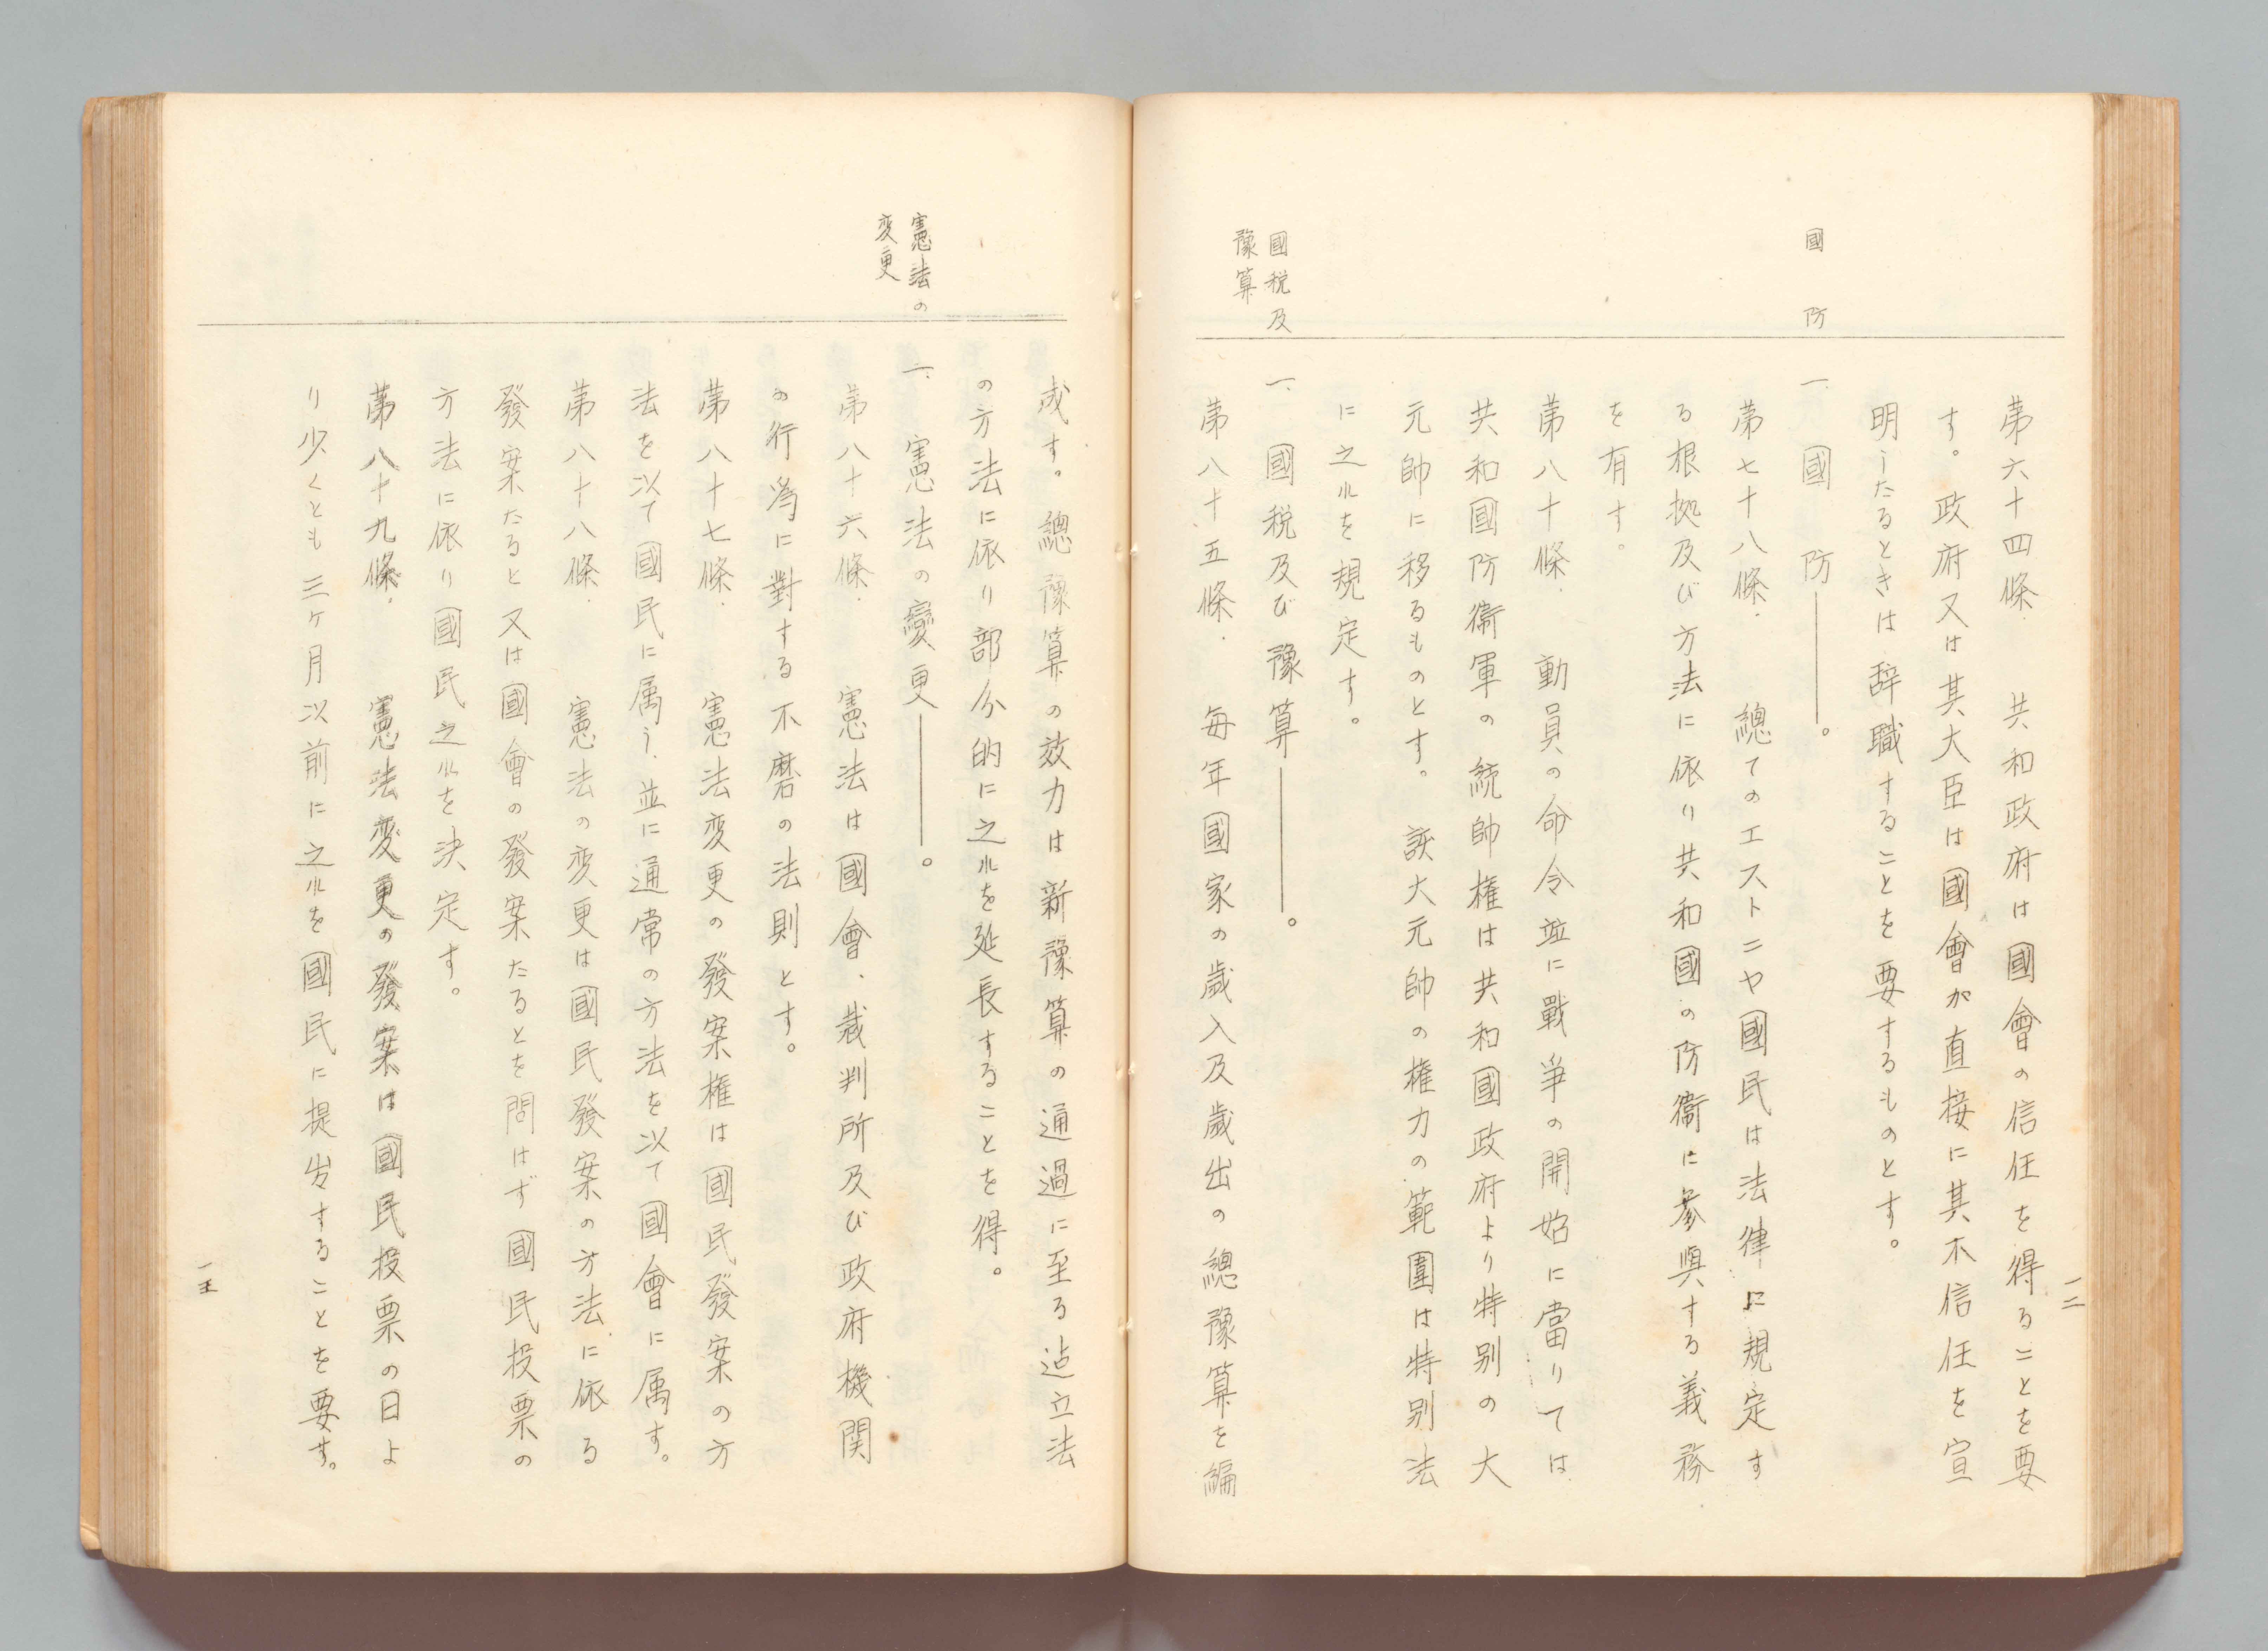 國防
第六十四條.　共和政府は國會の信任を得ることを要
す。政府又は其大臣は國會が直接に其不信任を宣
明したるときは辞職することを要するものとす。
一.　國　防────。
第七十八條.　總てのエストニヤ國民は法律に規定す
る根拠及び方法に依り共和國の防衞に参與する義務
を有す。
第八十條.　動員の命令並に戰爭の開始に當りては
共和國防衞軍の統帥権は共和國政府より特別の大
元帥に移るものとす。該大元帥の権力の範圍は特別法
に之れを規定す。
國税及
豫算
一.　國税及び豫算────。
第八十五條.　毎年國家の歳入及歳出の總豫算を編
一二
成す。總豫算の效力は新豫算の通過に至る迠立法
の方法に依り部分的に之れを延長することを得。
憲法の
変更
一.　憲法の變更────。
第八十六條.　憲法は國會、裁判所及び政府機関
の行為に對する不磨の法則とす。
第八十七條.　憲法変更の發案権は國民發案の方
法を以て國民に属し.並に通常の方法を以て國會に属す。
第八十八條.　憲法の変更は國民發案の方法に依る
發案たると又は國會の發案たるとを問はず國民投票の
方法に依り國民之れを決定す。
第八十九條.　憲法変更の發案は國民投票の日よ
り少くとも三ヶ月以前に之れを國民に提出することを要す。